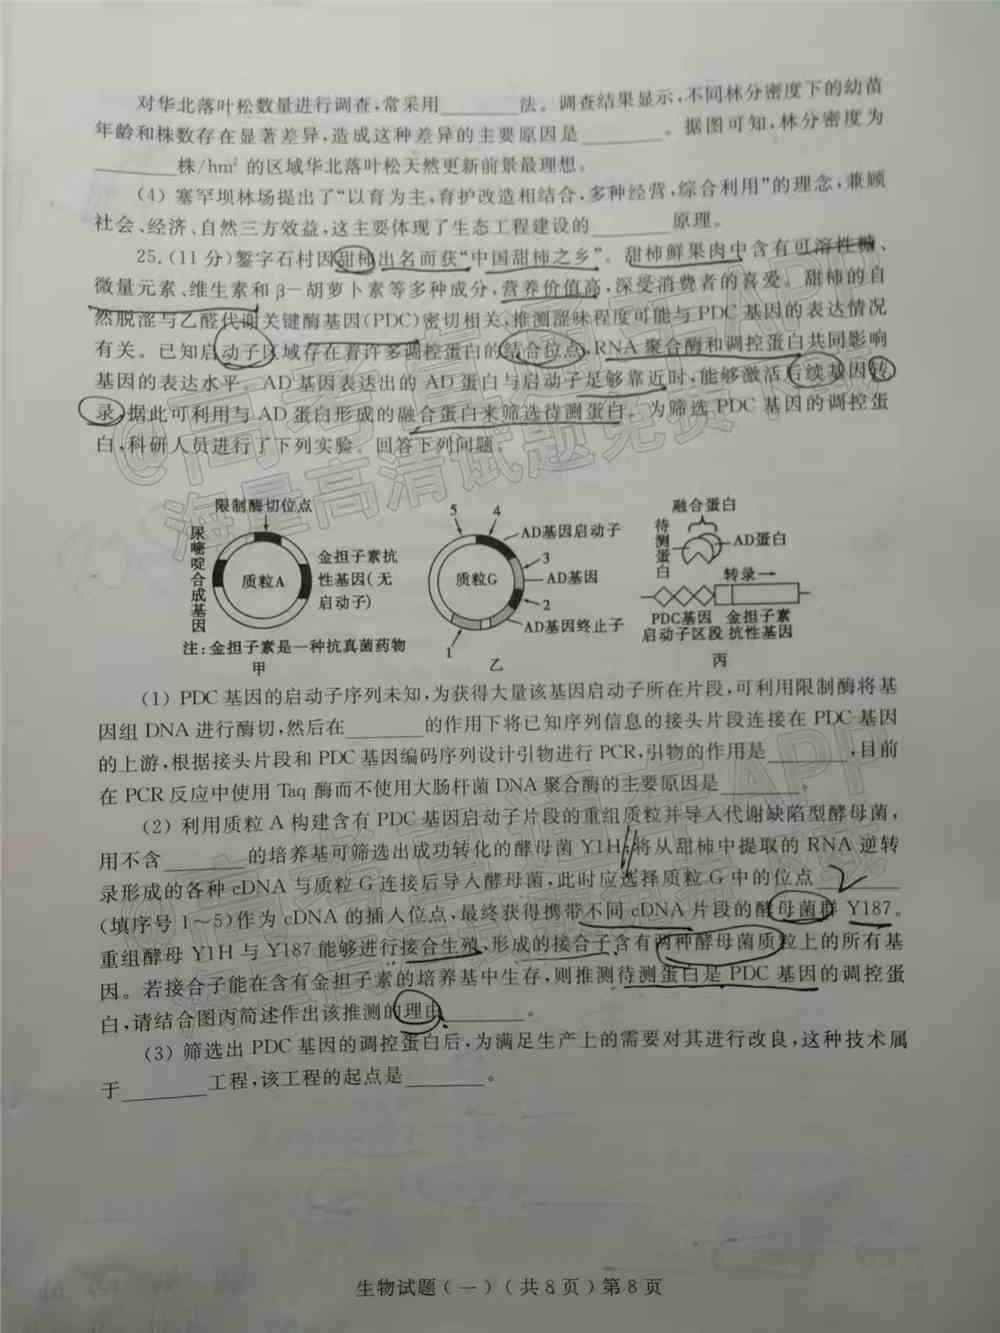 对华北落叶松数量进行调查,常采用________法。调查结果显示,不同林分密度下的幼苗
年龄和株数存在显著差异,造成这种差异的主要原因是________。据图可知,林分密度为
________株/hm²的区域华北落叶松天然更新前景最理想。
(4)塞罕坝林场提出了“以育为主,育护改造相结合,多种经营,综合利用”的理念,兼顾
社会、经济、自然三方效益,这主要体现了生态工程建设的________原理。
25.(11分)錾字石村因甜柿出名而获“中国甜柿之乡”。甜柿鲜果肉中含有可溶性糖、
微量元素、维生素和β-胡萝卜素等多种成分,营养价值高,深受消费者的喜爱。甜柿的自
然脱涩与乙醛代谢关键酶基因(PDC)密切相关,推测涩味程度可能与PDC基因的表达情况
有关。已知启动子区域存在着许多调控蛋白的结合位点,RNA聚合酶和调控蛋白共同影响
基因的表达水平。AD基因表达出的AD蛋白与启动子足够靠近时,能够激活后续基因转
录,据此可利用与AD蛋白形成的融合蛋白来筛选待测蛋白。为筛选PDC基因的调控蛋
白,科研人员进行了下列实验。回答下列问题。
限制酶切位点
尿嘧啶合成基因
质粒A
金担子素抗
性基因(无
启动子)
注:金担子素是一种抗真菌药物
甲
5
4
AD基因启动子
3
质粒G
AD基因
2
AD基因终止子
1
乙
融合蛋白
待测蛋白
AD蛋白
转录→
PDC基因
启动子区段
金担子素
抗性基因
丙
(1)PDC基因的启动子序列未知,为获得大量该基因启动子所在片段,可利用限制酶将基
因组DNA进行酶切,然后在________的作用下将已知序列信息的接头片段连接在PDC基因
的上游,根据接头片段和PDC基因编码序列设计引物进行PCR,引物的作用是________,目前
在PCR反应中使用Taq酶而不使用大肠杆菌DNA聚合酶的主要原因是________。
(2)利用质粒A构建含有PDC基因启动子片段的重组质粒并导入代谢缺陷型酵母菌,
用不含________的培养基可筛选出成功转化的酵母菌Y1H;将从甜柿中提取的RNA逆转
录形成的各种cDNA与质粒G连接后导入酵母菌,此时应选择质粒G中的位点________
(填序号1~5)作为cDNA的插入位点,最终获得携带不同cDNA片段的酵母菌群Y187。
重组酵母Y1H与Y187能够进行接合生殖,形成的接合子含有两种酵母菌质粒上的所有基
因。若接合子能在含有金担子素的培养基中生存,则推测待测蛋白是PDC基因的调控蛋
白,请结合图丙简述作出该推测的理由________。
(3)筛选出PDC基因的调控蛋白后,为满足生产上的需要对其进行改良,这种技术属
于________工程,该工程的起点是________。
生物试题(一)(共8页)第8页